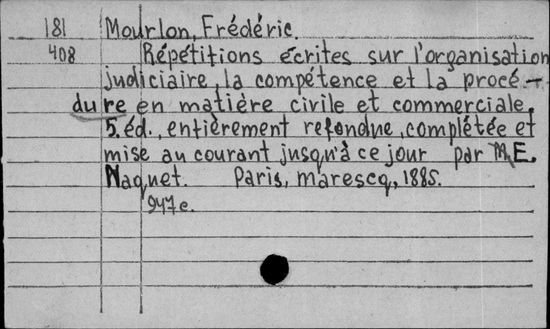 181 Mourlon, Frédéric.
408 Répétitions écrites sur l'organisation
judiciaire, la compétence et la procé-
dure en matière civile et commerciale.
5. éd., entièrement refondue, complétée et
mise au courant jusqu'à ce jour par M.E.
Naquet. Paris, marescq, 1885.
947 e.